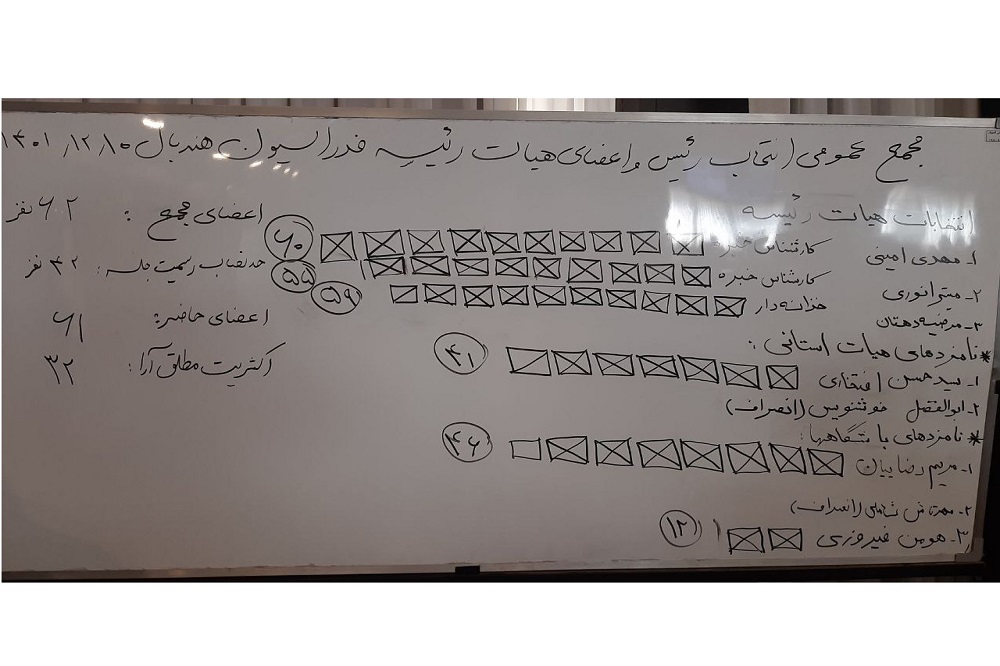 مجمع عمومی انتخاب رئیس و اعضای هیات رئیسه فدراسیون هندبال ۱۴۰۱/۱۲/۱۰
انتخابات هیات رئیسه
۱- مهدی امینی کارشناس خبره ۶۰
۲- میترا نوری کارشناس خبره ۵۵
۳- مرضیه دهقان خزانه دار ۵۹
* نامزدهای هیات استانی:
۱- سید حسن افتخاری ۴۱
۲- ابوالفضل خوشنویس (انصراف)
* نامزدهای باشگاهها:
۱- مریم رضاییان ۴۶
۲- مهرتاش شاملی (انصراف)
۳- هومن فیروزی ۱۲
اعضای مجمع: ۶۲ نفر
حد نصاب رسمیت جلسه: ۴۲ نفر
اعضای حاضر: ۶۱
اکثریت مطلق آرا: ۳۲